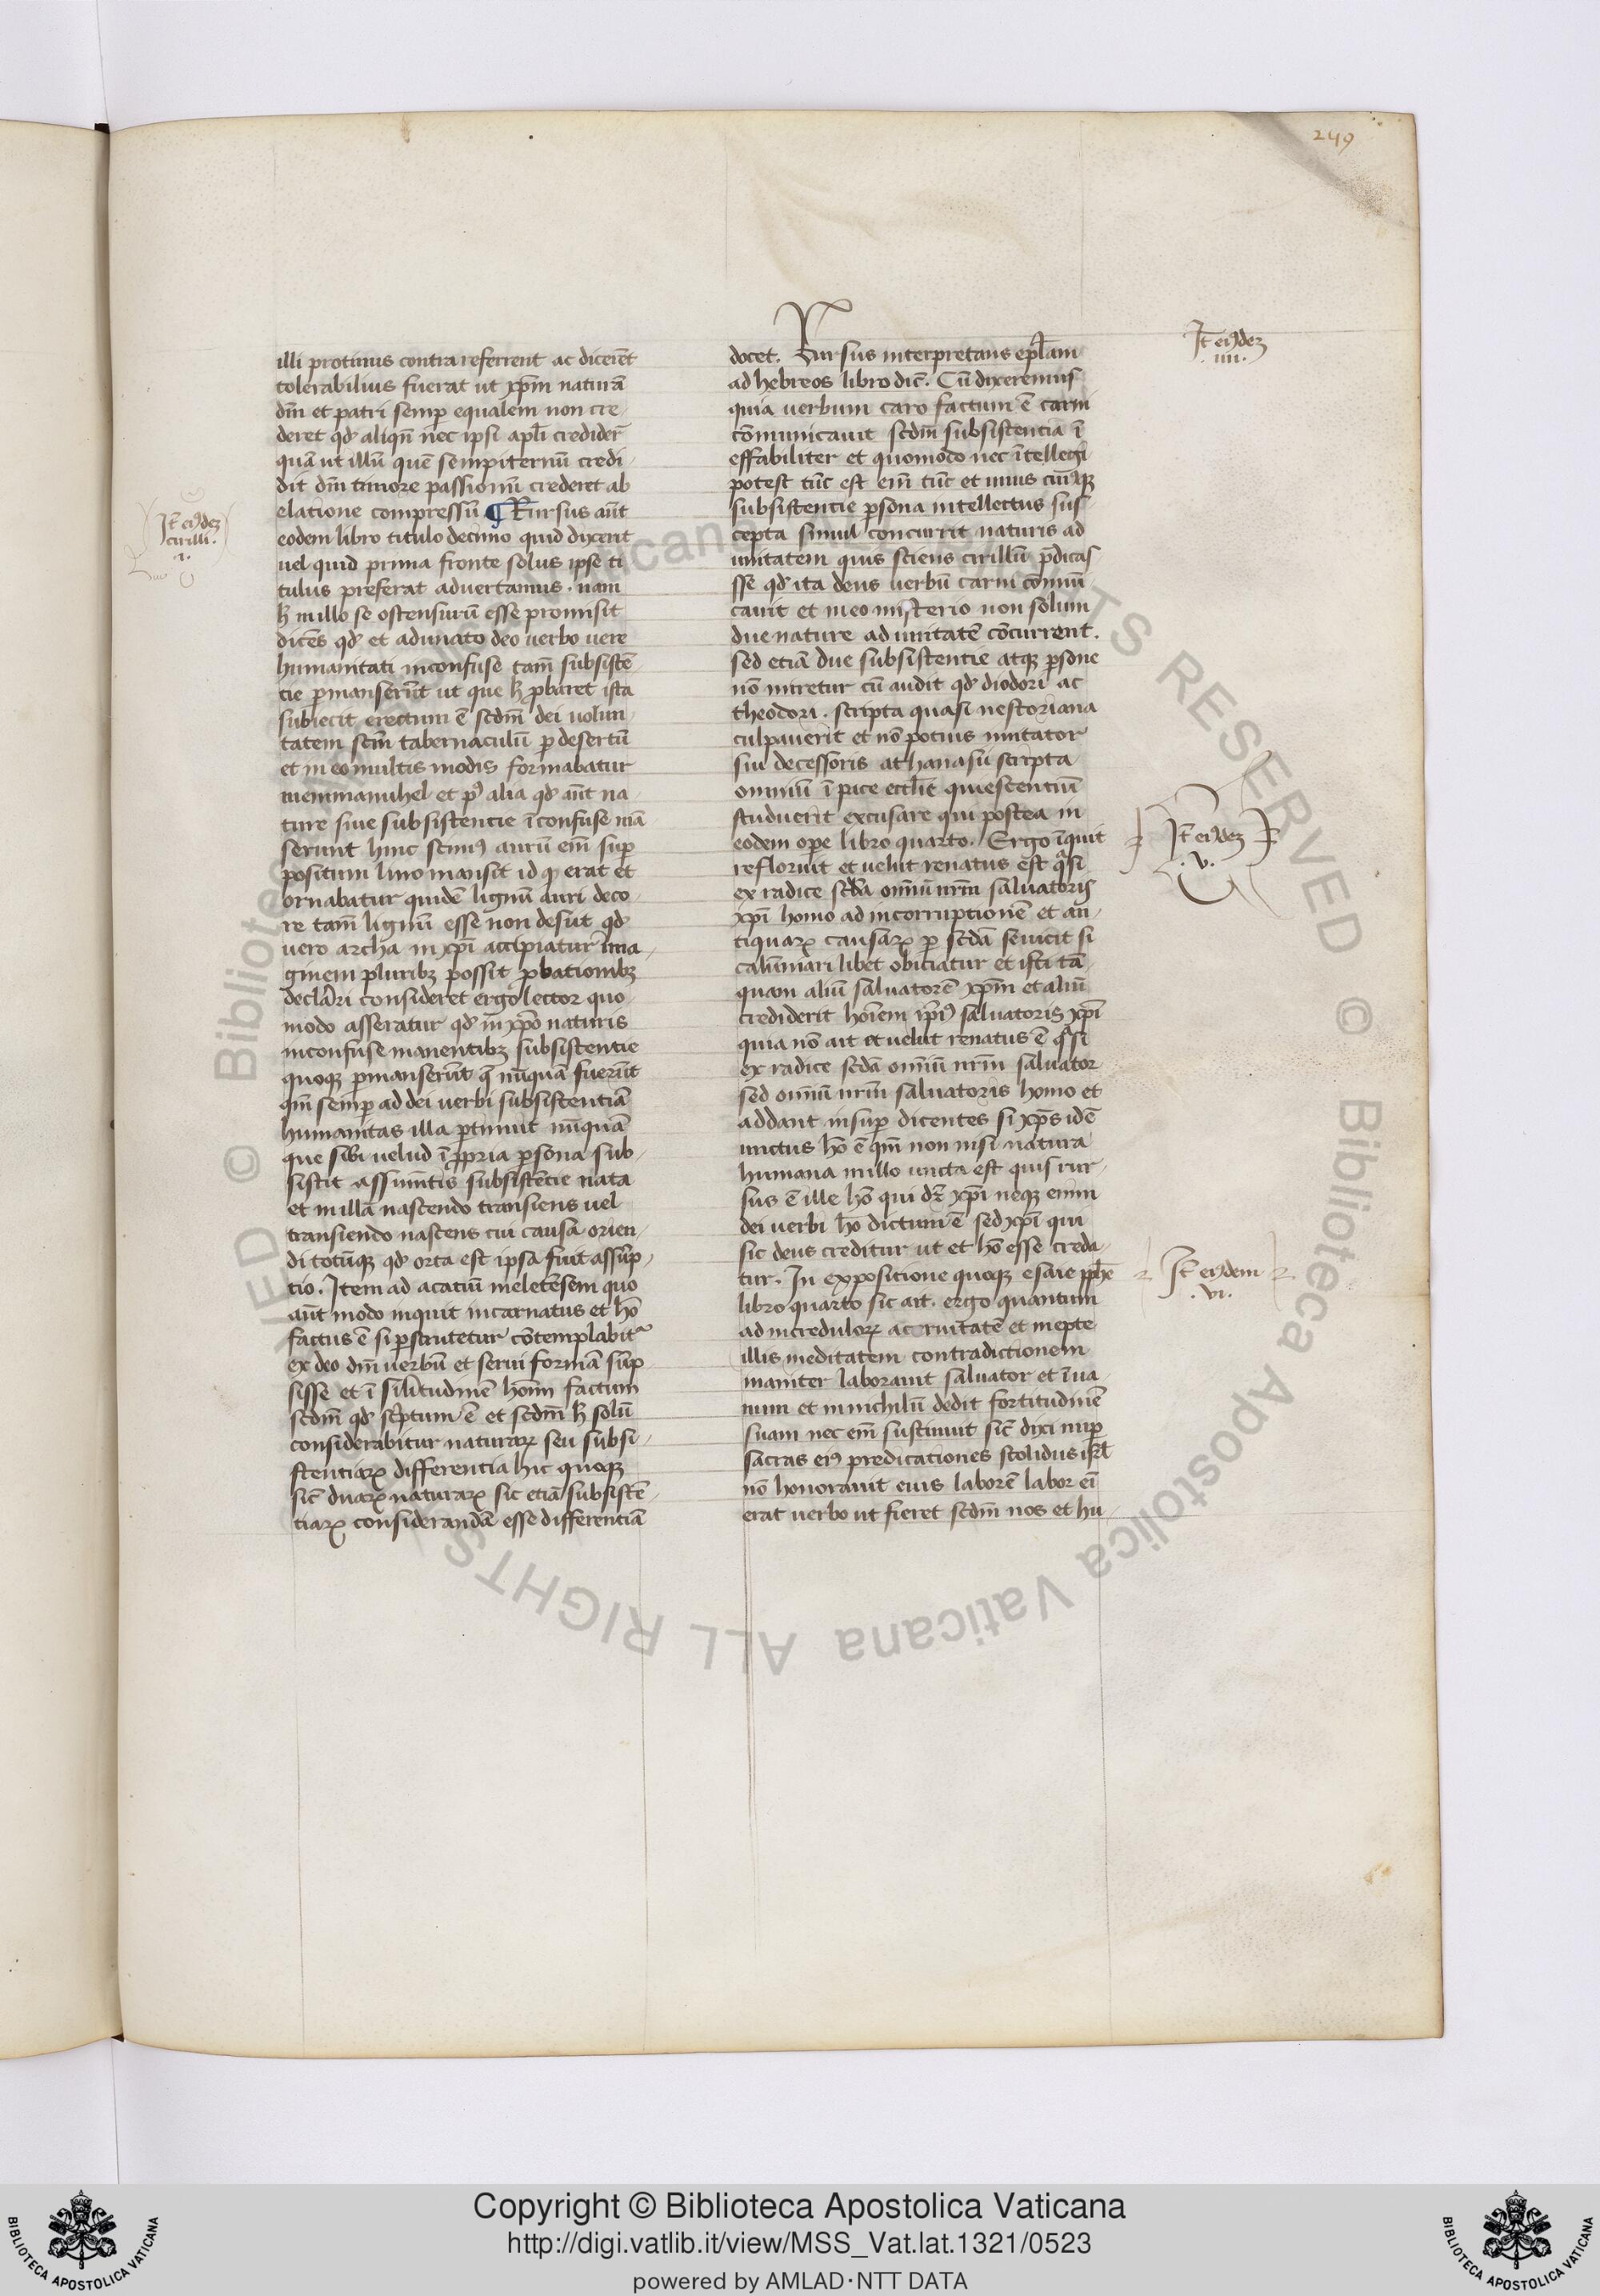 249
illi protinus contra referrent ac dicerēt
tolerabilius fuerat ut xp̄m naturā
dm̄ et patri semp̄ equalem non cre-
deret qd' aliqn̄ nec ipsi apl̄i crediderт̄
quā ut illū quē sempiternū credi-
dit dm̄ timore passionū crederet ab
elatione compressū ¶ Rursus aūt
eodem libro titulo decimo quid dixerit
uel quid prima fronte solus ipse ti
tulus preferat advertamus. nam
h̄ in illo se ostensurū esse promisit
dicēs qd' et adunato deo verbo vere
humanitati inconfuse tam̄ subsistē-
tie p̄manserūt ut que h̄ p̄baret ista
subiecit erectum ē scdm̄ dei uolun-
tatem scm̄ tabernaculū p̄ desertū
et in eo multis modis formabatur
uemmanuhel et p' alia qd' aūt na-
ture siue subsistentie īconfuse mā
serunt hinc scim' aurū em̄ sup̄
positum lino mansit id qd erat et
ornabatur quidē lignū auri deco-
re tam̄ lignū esse non desūt qd'
vero archa in xp̄i accipiatur ima-
ginem pluribz possit p̄bationibz
declari consideret ergo lector quo-
modo asseratur qd' in xp̄o naturis
inconfuse manentibz subsistentie
quoqz p̄manserūt q̄ nūquā fuerūt
qm̄ semp̄ ad dei verbi subsistentiā
humanitas illa p̄tinuit nūquā
que sibi uelud ī p̄pria p̄sona sub-
sistit assumētis subsistētie nata
et in illā nascendo transiens uel
transiendo nascens cui causa orien-
di totūqz qd' orta est ipsa fuit assūp-
tio. Item ad acatiū meletēsem quo
aūt modo inquit incarnatus et hō
factus ē si p̄scrutetur cōtemplabit'
ex deo dm̄ verbū et serui formā sūp
sisse et ī sil̄itudinē hom̄ factum
scdm̄ qd' sc'ptum ē et scdm̄ h̄ solū
considerabitur naturaꝝ seu subsi-
stentiaꝝ differentia hic quoqz
sic̄ duaꝝ naturaꝝ sic etiā subsistē-
tiaꝝ considerandā esse differentiā
It̄ ei'dez
cirilli.
.i.
docet. Rursus interpretans epl̄am
ad hebreos libro dic̄. Cū dixerimus
quia uerbum caro factum ē carni
cōmunicauit scdm̄ subsistentiā ī
effabiliter et quomodo nec ītellegi
potest tūc est em̄ tūc et unius cuiusqz
subsistentie p̄sona intellectus sus-
cepta simul concurrit naturis ad
unitatem quis sciens cirillū p̄dicas
sse qd' ita deus uerbū carni cōmuni
cauit et in eo misterio non solum
due nature ad unitatē cōcurrent.
sed etiā due subsistentie atqz p̄sone
nō miretur cū audit qd' diodori ac
theodori. scripta quasi nestoriana
culpauerit et nō potius imitator
sui decessoris athanasii scripta
omniū ī pace eccl̄ie quiescentiū
studuerit excusare qui postea in
eodem op̄e libro quarto. Ergo īquit
refloruit et uelut renatus est q'si
ex radice scd̄a omniū nr̄m saluatoris
xp̄i homo ad incorruptionē et an-
tiquaꝝ causaꝝ p̄ scdā seuicit si
calūniari libet obiciatur et isti tā-
quam aliū saluatorē xp̄m et aliū
crediderit hoīem ip̄i' saluatoris xp̄i
quia nō ait et uelut renatus ē q'si
ex radice scdā omniū nr̄m saluator
sed omniū nr̄m saluatoris homo et
addant insup̄ dicentes si xp̄s idē
unctus hō ē qm̄ non nisi natura
humana in illo uncta est quis rur-
sus ē ille hō qui dr̄ xp̄i neqz enim
dei uerbi hō dictum ē sed xp̄i qui
sic deus creditur ut et hō esse creda-
tur. In expositione quoqz esaie pph̄e
libro quarto sic ait. ergo quantum
ad incredulorꝝ acervitatē et inepte
illis meditatem contradictionem
inaniter laborauit saluator et ī ua-
num et in nichilū dedit fortitudinē
suam nec em̄ sustinuit sic̄ dixi nup̄
sacras ei' predicationes stolidus isrl̄
nō honorauit euis laborē labor ei
erat uerbo ut fieret scdm̄ nos et hu-
It̄ ei'dez
.iiii.
It̄ ei'dez
.v.
It̄ ei'dem
.vi.
© Biblioteca Apostolica Vaticana ALL RIGHTS RESERVED
Copyright © Biblioteca Apostolica Vaticana
http://digi.vatlib.it/view/MSS_Vat.lat.1321/0523
powered by AMLAD·NTT DATA
BIBLIOTECA APOSTOLICA VATICANA
BIBLIOTECA APOSTOLICA VATICANA